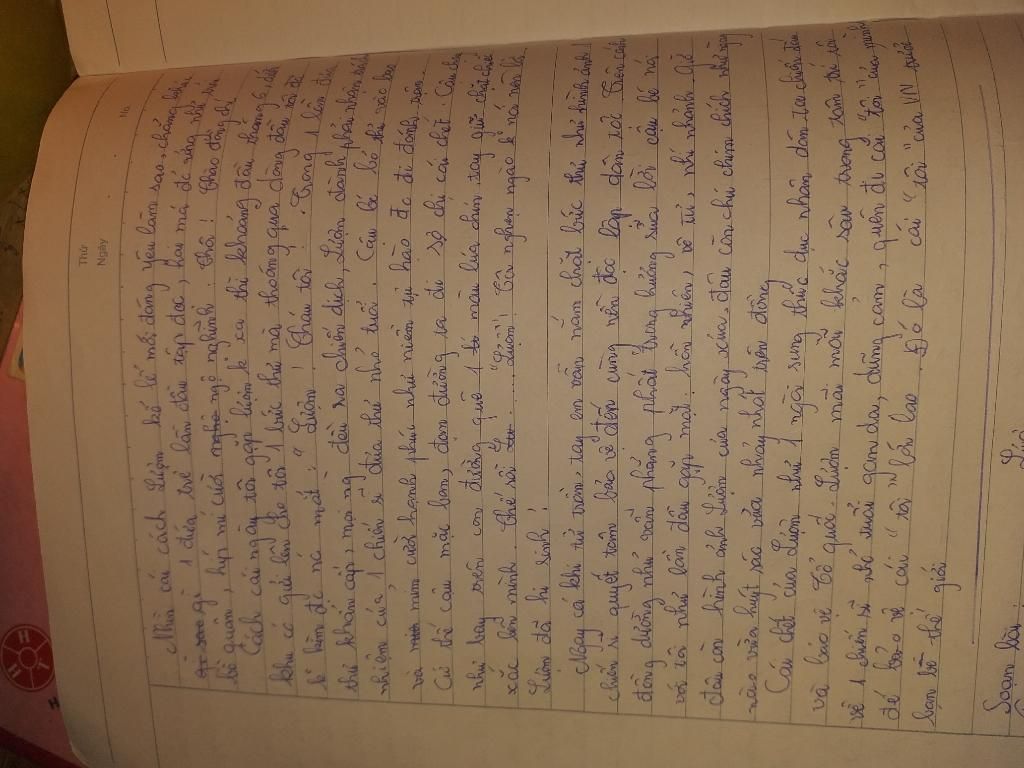 Thứ
Ngày
No.
Nhìn cái cách Lượm kể lể mới đáng yêu làm sao, chẳng khác
gì 1 đứa trẻ lần đầu tập đọc, hai má đỏ ửng như
bồ quân, híp mí cười ngộ nghĩnh. Thôi! Chào đồng chí.
Cách cái ngày tôi gặp Lượm k xa thì kháng đầu tháng 6,
khi cô giơ lên cho tôi 1 bức thư mà thoáng qua dòng đầu tôi đã
k kìm đc nc mắt: "Lượm! Cháu tôi!. Trong 1 lần
thư khẩn cấp, mọi ng đều ra chiến dịch, Lượm đành phải nhận
nhiệm của 1 chiến sĩ đưa thư nhỏ tuổi. Cậu bé bỏ thư vào bao
và mỉm cười hạnh phúc như niềm tự hào đc đi đánh trận.
Cứ thế cậu mặc bom, đạn đường xa đi sợ chi cái chết. Cậu bé
như bay trên con đường quê 1 màu lúa chín
xắc bên mình. Thế rồi ......... "Lượm"! Tôi nghẹn ngào k nói nên lời
Lượm đã hi sinh!
Ngay cả khi tử trận, tay em vẫn nắm chặt bức thư như hình ảnh 1
chiến sĩ quyết tâm bảo vệ đến cùng nền độc lập dân tộc. Trên cánh
đồng dường như vẫn phảng phất hương sữa bởi cậu bé nói
với tôi như lần đầu gặp mặt: hồn nhiên, vô tư, nhí nhảnh. Giờ
đâu còn hình ảnh Lượm của ngày xưa, đâu còn chú chim chích nhảy
nào vừa huýt sáo vừa nhảy nhót trên đồng.
Cái chết của Lượm như 1 ngòi súng thúc dục nhân dân ta chiến đấu
và bảo vệ Tổ quốc. Lượm mãi mãi khắc sâu trong tâm trí tôi
về 1 chiến sĩ nhỏ tuổi gan dạ, dũng cảm, quên đi cái "tôi" của mình
để bảo vệ cái "tôi" lớn lao. Đó là cái "tôi" của VN trước
bạn bè thế giới
Soạn bài: